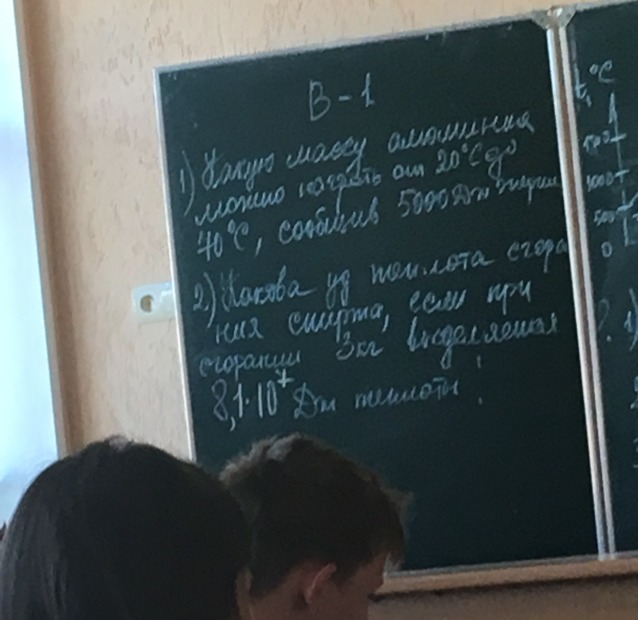 В-1
1) Какую массу алюминия
можно нагреть от 20°C до
40°C, сообщив 5000 Дж энергии
2) Какова уд теплота сгора
ния спирта, если при
сгорании 3кг выделяется
8,1·10⁷ Дж теплоты
t, °C
1000
500
0